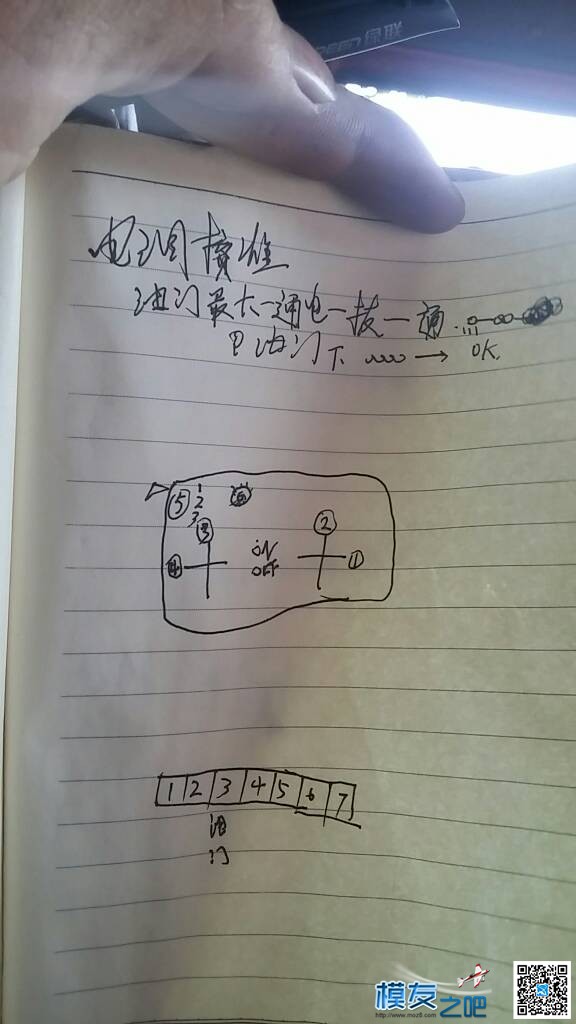 绿联
电调校准
油门最大一通电一拔一通
油门下 → OK.
⑤ 1 2 3
⑥
③
②
④
ON
OFF
①
1 2 3 4 5 6 7
油
门
模友之吧
http://www.moz8.com